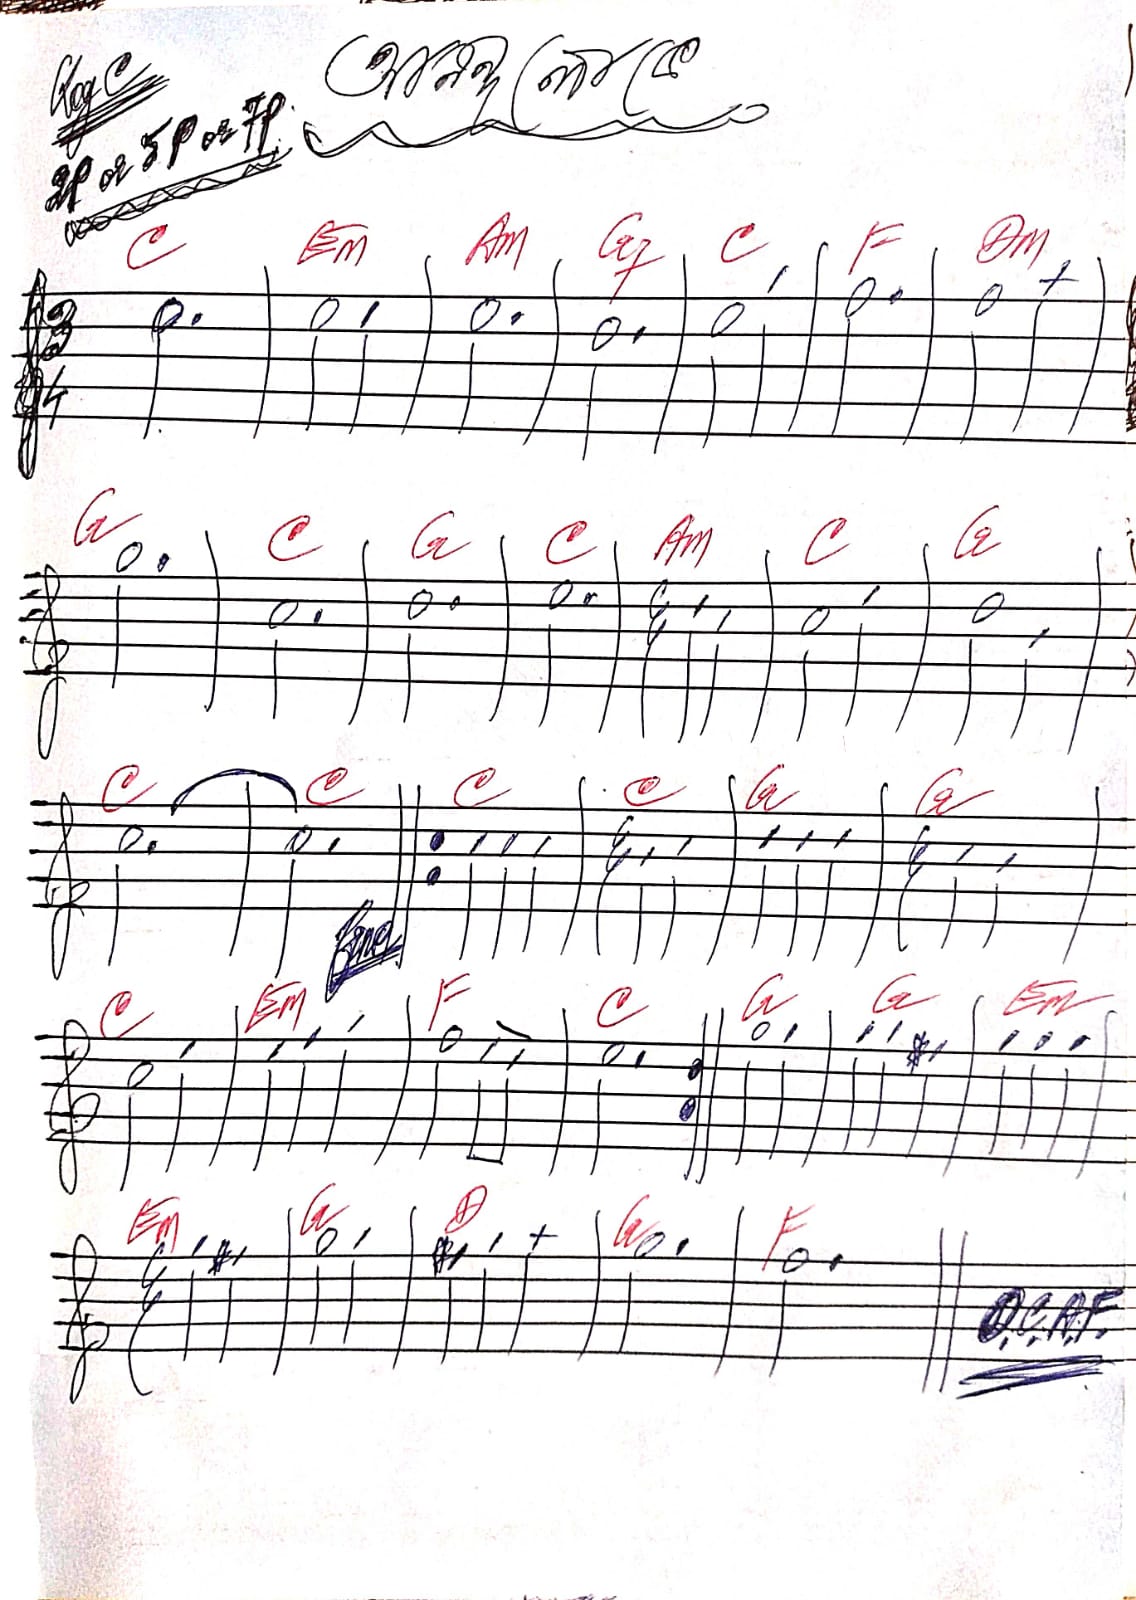 Key C
আনন্দ লোকে
2P or 5P or 7P.
C Em Am G7 C F Dm
3
4
G C G C Am C G
C C C C G G
Fine
C Em F C G G Em
Em G D G F
D.C.A.F.